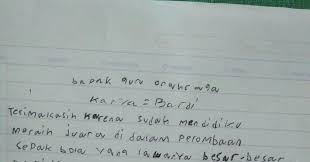 bapak guru orahraga
Karya = Bardi
Terimakasih karena sudah mendidiku
meraih juara di dalam perombaan
sepak bola yang lawanya besar-besar